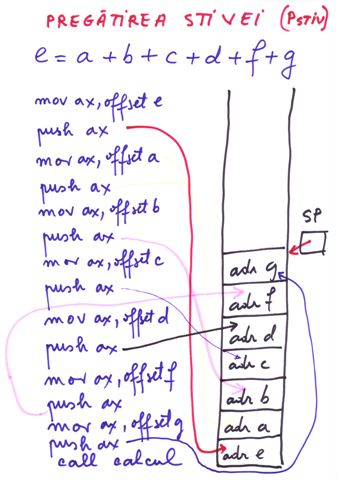 PREGĂTIREA STIVEI (PSTIV)
e = a + b + c + d + f + g
mov ax, offset e
push ax
mov ax, offset a
push ax
mov ax, offset b
push ax
mov ax, offset c
push ax
mov ax, offset d
push ax
mov ax, offset f
push ax
mov ax, offset g
push ax
call calcul
SP
adr g
adr f
adr d
adr c
adr b
adr a
adr e